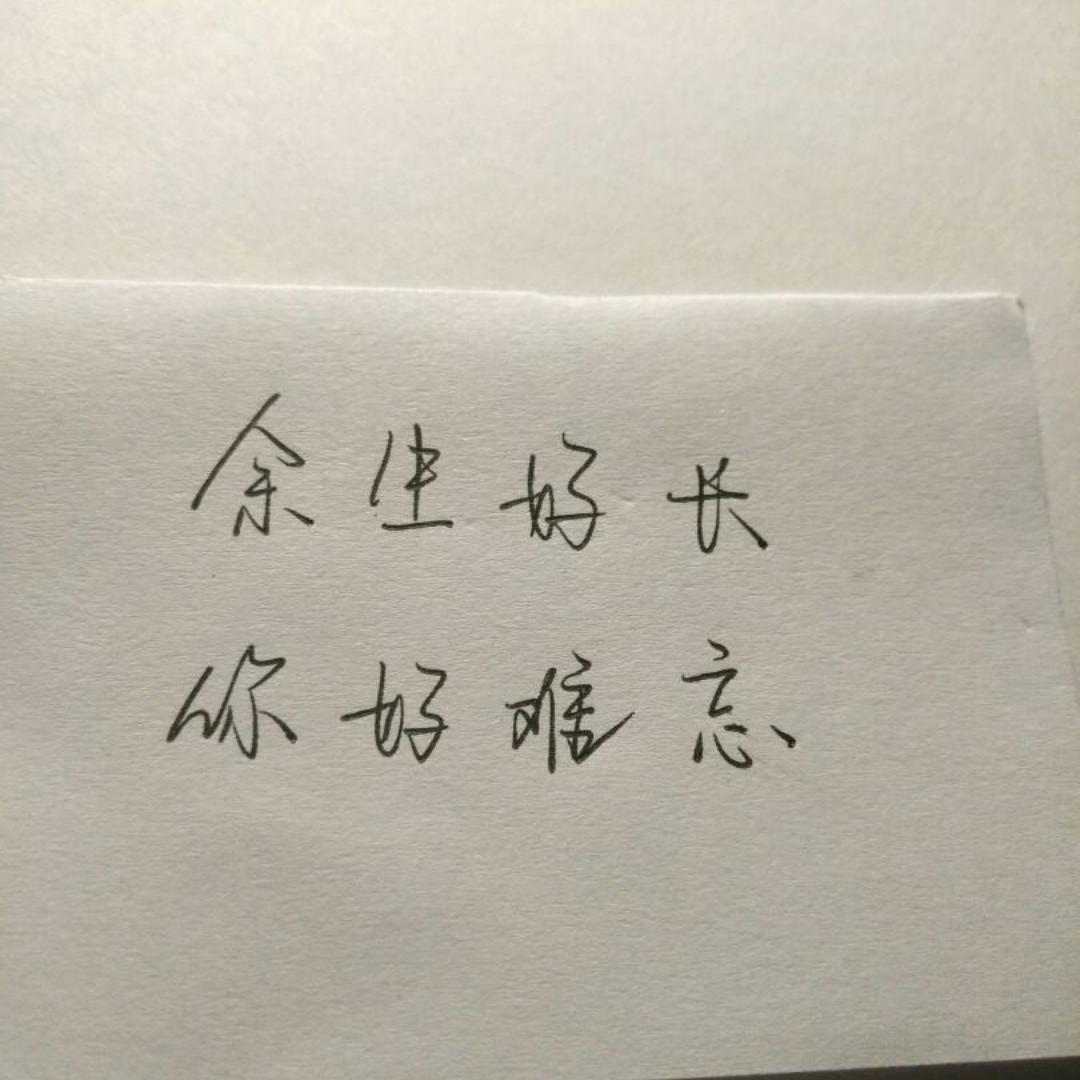 余生好长
你好难忘